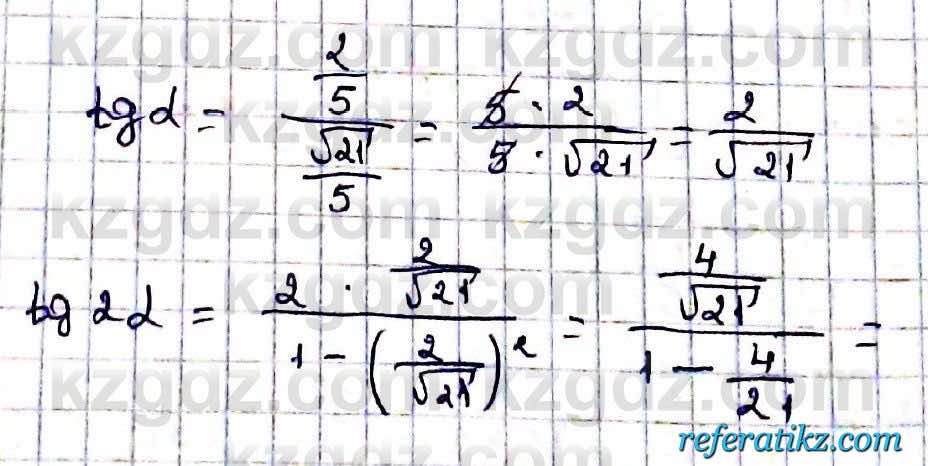 kzgdz.com kzgdz.com
tg α = (2/5)/(√21/5) = (5 · 2)/(5 · √21) = 2/√21
kzgdz.com kzgdz.com
kzgdz.com kzgdz.com
tg 2α = (2 · 2/√21)/(1 − (2/√21)²) = (4/√21)/(1 − 4/21) =
kzgdz.com kzgdz.com
referatikz.com